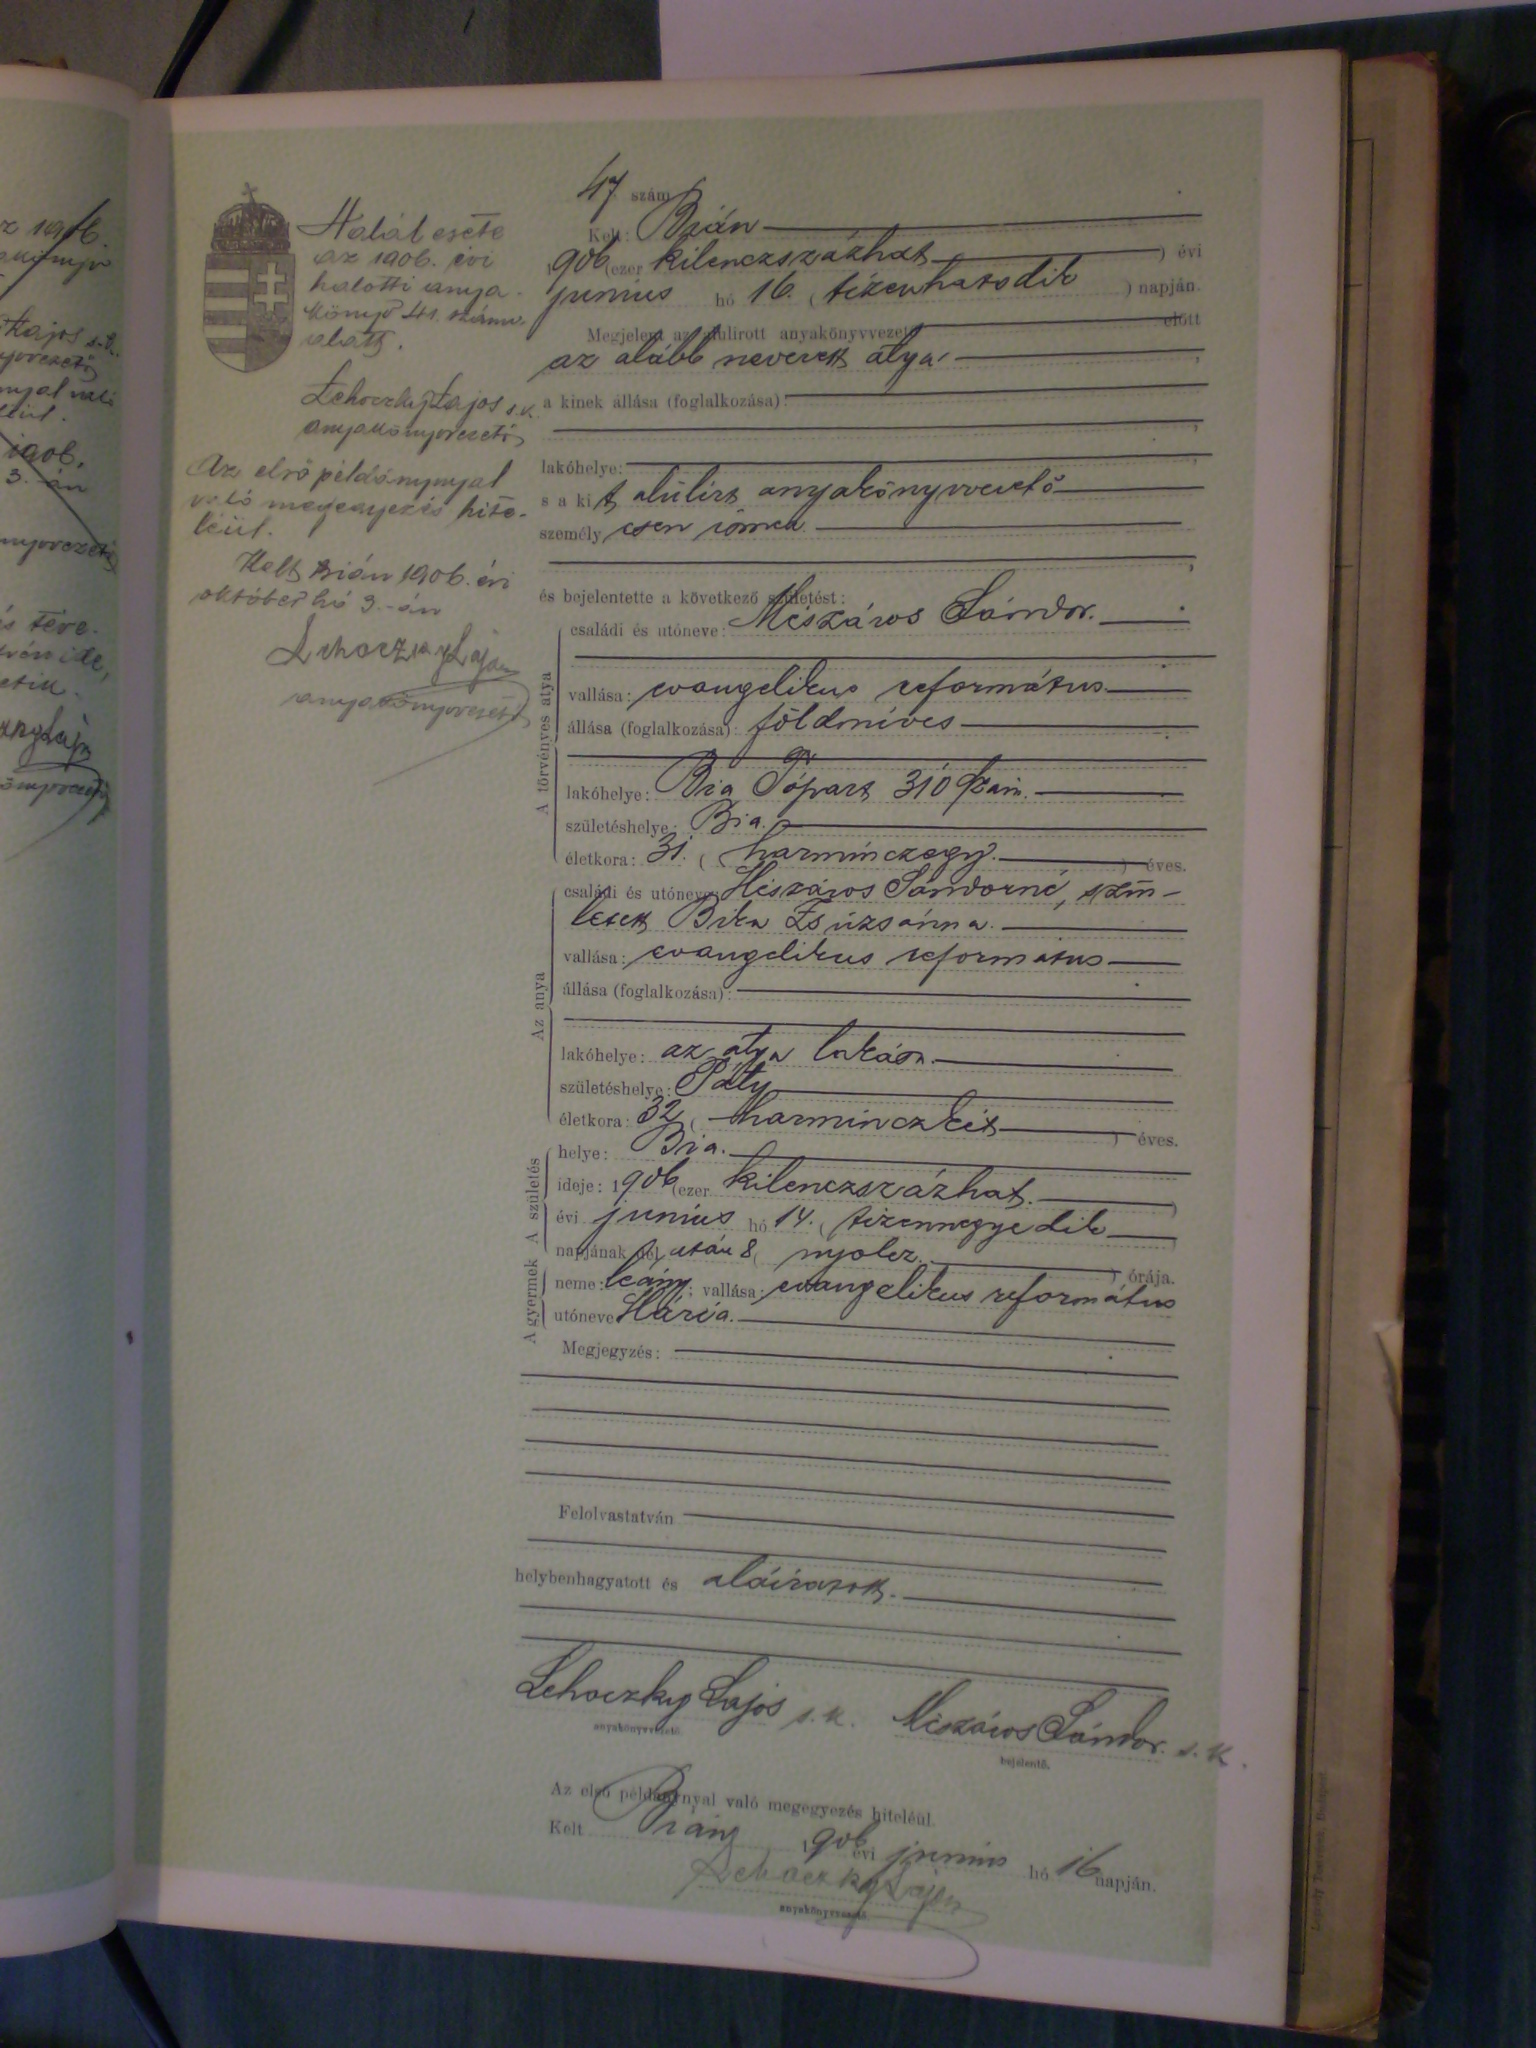 47 szám
Kelt: Bián
1906 (ezer kilenczszázhat ) évi
junius hó 16. (tizenhatodik ) napján.
Megjelent az alulirott anyakönyvvezető előtt
az alább nevezett atya
a kinek állása (foglalkozása):
lakóhelye:
s a kit alulirt anyakönyvvezető
személyesen ismer.
és bejelentette a következő születést:
A törvényes atya
családi és utóneve: Mészáros Sándor.
vallása: evangelikus református
állása (foglalkozása): földmíves
lakóhelye: Bia Tópart 310 szám.
születéshelye: Bia.
életkora: 31. (harminczegy. ) éves.
Az anya
családi és utóneve: Mészáros Sándorné, szü-
letett Bika Zsúzsánna.
vallása: evangelikus református
állása (foglalkozása):
lakóhelye: az atya lakása
születéshelye: Páty
életkora: 32 (harminczkét ) éves.
A születés
helye: Bia.
ideje: 1906 (ezer kilenczszázhat. )
évi junius hó 14. (tizennegyedik )
napjának dél után 8 (nyolcz. ) órája.
A gyermek
neme: leány; vallása: evangelikus református
utóneve Mária.
Megjegyzés:
Felolvastatván
helybenhagyatott és aláiratott.
Lehoczky Lajos s.k. Mészáros Sándor. s.k.
anyakönyvvezető. bejelentő.
Az első példánynyal való megegyezés hiteléül.
Kelt Bián 1906 évi junius hó 16 napján.
Lehoczky Lajos
anyakönyvvezető
Halál esete
az 1906. évi
halotti anya-
könyv 41. száma
alatt.
Lehoczky Lajos s.k.
anyakönyvvezető
Az első példánynyal
való megegyezés hite-
léül.
Kelt Bián 1906. évi
október hó 3.-án
Lehoczky Lajos
anyakönyvvezető